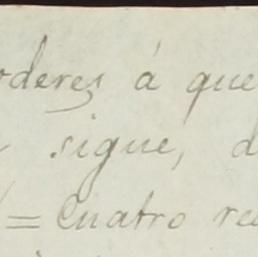 oderes á que
sigue, d
= Cuatro re